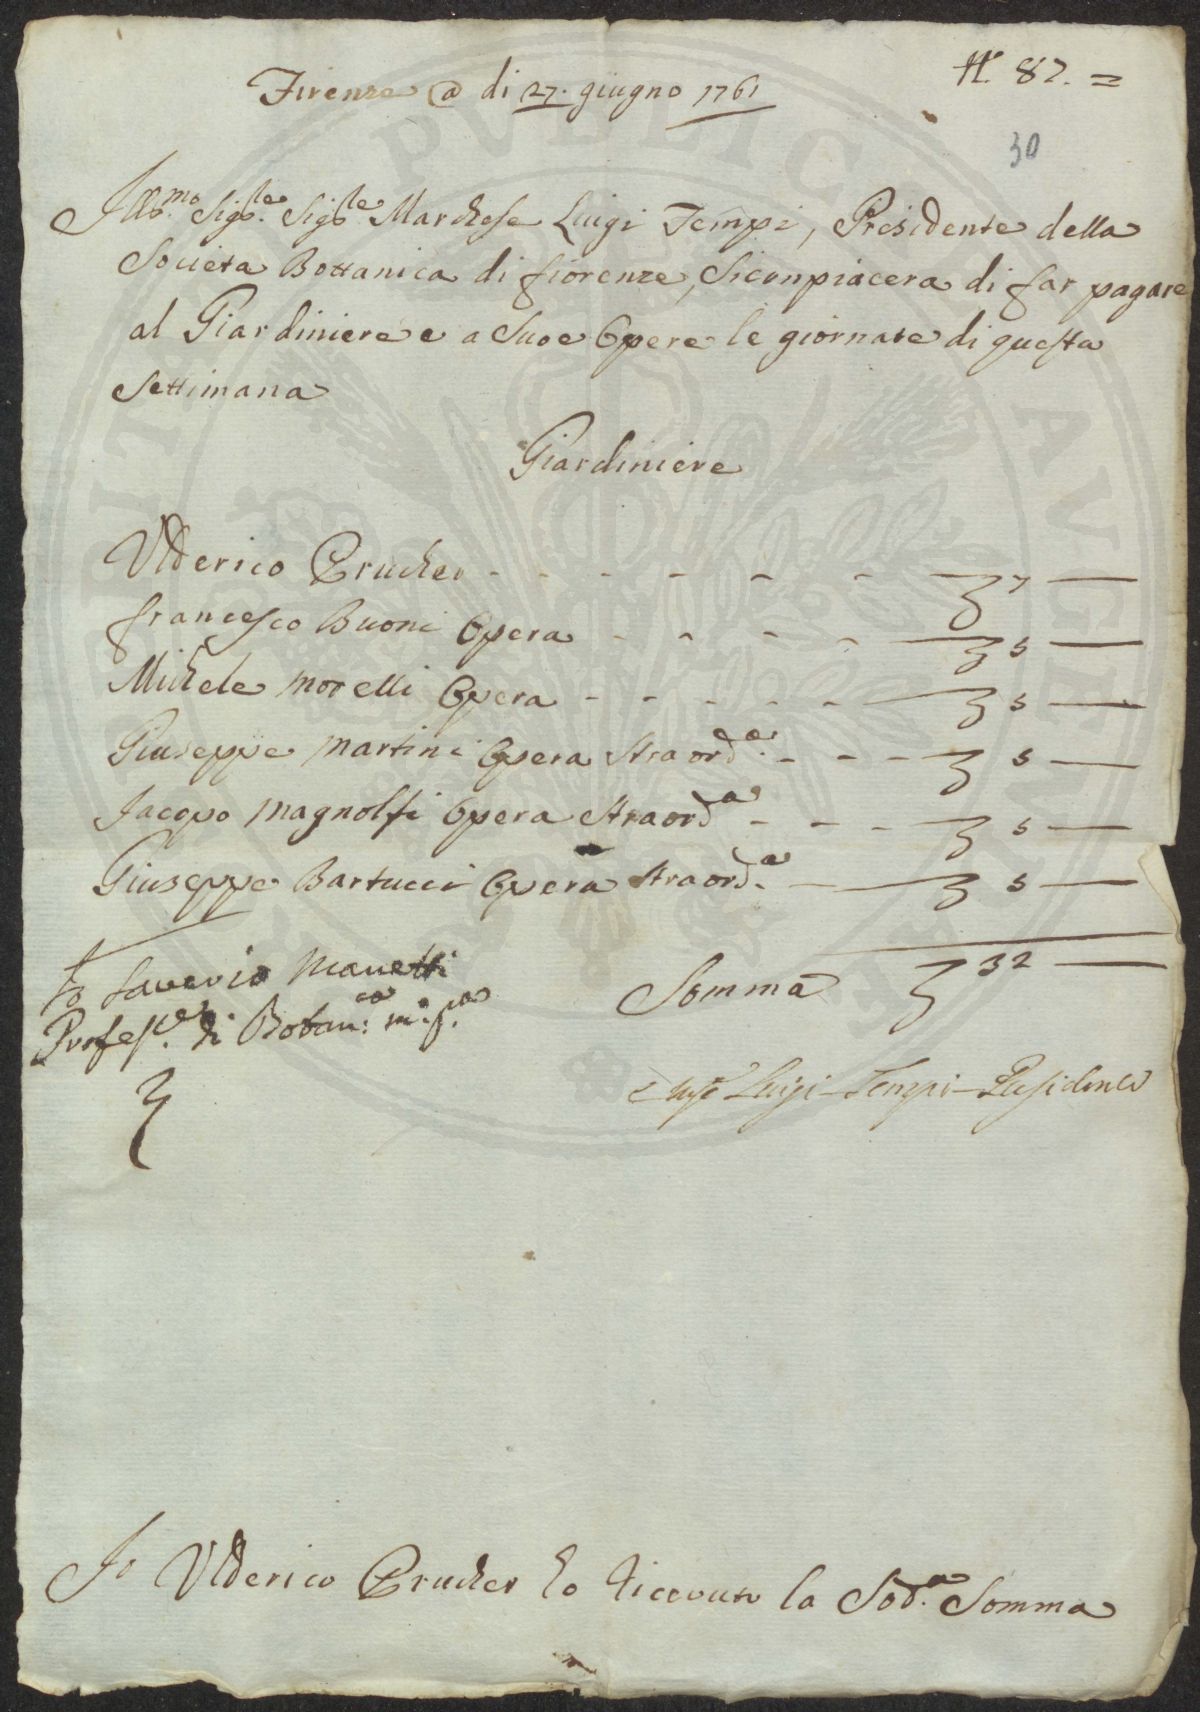 N. 87. =
Firenze @ di 27. giugno 1761
30
Ill.mo Sig.le Sig.le Marchese Luigi Tempi, Presidente della
Societa Bottanica di fiorenze, Siconpiacera di far pagare
al Giardiniere e a Suoe Opere le giornate di questa
Settimana
Giardiniere
Ulderico Prucher - - - - - - £ 7 —
francesco Buoni Opera - - - - £ 5 —
Michele Morelli Opera - - - - - £ 5 —
Giuseppe Martini Opera Straord.a - - - £ 5 —
Jacopo Magnolfi Opera Straord.a - - - £ 5 —
Giuseppe Bartucci Opera Straord.a — £ 5 —
Somma £ 32 —
Io Saverio Manetti
Profes.re di Botan.ca m. p.a
Luigi Tempi Presidente
Io Ulderico Prucher ho ricevuto la Sod.a Somma
PVBLIC